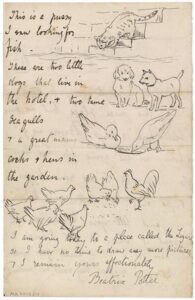 This is a pussy
I saw looking for
fish.
These are two little
dogs that live in
the hotel, & two tame
sea gulls
& a great many
cocks & hens in
the garden.
I am going today to a place called the
so I have no time to draw any more pictures
& I remain yours affectionately
Beatrix Potter